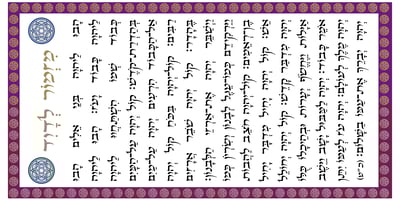 מִזְמוֹר לְדָוִד
הָבוּ לַיהוָה בְּנֵי אֵלִים הָבוּ
לַיהוָה כָּבוֹד וָעֹז: הָבוּ לַיהוָה
כְּבוֹד שְׁמוֹ הִשְׁתַּחֲווּ לַיהוָה
בְּהַדְרַת־קֹדֶשׁ: קוֹל יְהוָה עַל־הַמָּיִם
אֵל־הַכָּבוֹד הִרְעִים יְהוָה עַל־מַיִם
רַבִּים: קוֹל־יְהוָה בַּכֹּחַ קוֹל יְהוָה
בֶּהָדָר: קוֹל יְהוָה שֹׁבֵר אֲרָזִים
וַיְשַׁבֵּר יְהוָה אֶת־אַרְזֵי הַלְּבָנוֹן:
וַיַּרְקִידֵם כְּמוֹ־עֵגֶל לְבָנוֹן וְשִׂרְיֹן כְּמוֹ
בֶן־רְאֵמִים: קוֹל־יְהוָה חֹצֵב לַהֲבוֹת
אֵשׁ: קוֹל יְהוָה יָחִיל מִדְבָּר יָחִיל
יְהוָה מִדְבַּר קָדֵשׁ: קוֹל יְהוָה יְחוֹלֵל
אַיָּלוֹת וַיֶּחֱשֹׂף יְעָרוֹת וּבְהֵיכָלוֹ כֻּלּוֹ
אֹמֵר כָּבוֹד: יְהוָה לַמַּבּוּל יָשָׁב וַיֵּשֶׁב
יְהוָה מֶלֶךְ לְעוֹלָם: יְהוָה עֹז לְעַמּוֹ יִתֵּן
יְהוָה יְבָרֵךְ אֶת־עַמּוֹ בַשָּׁלוֹם: